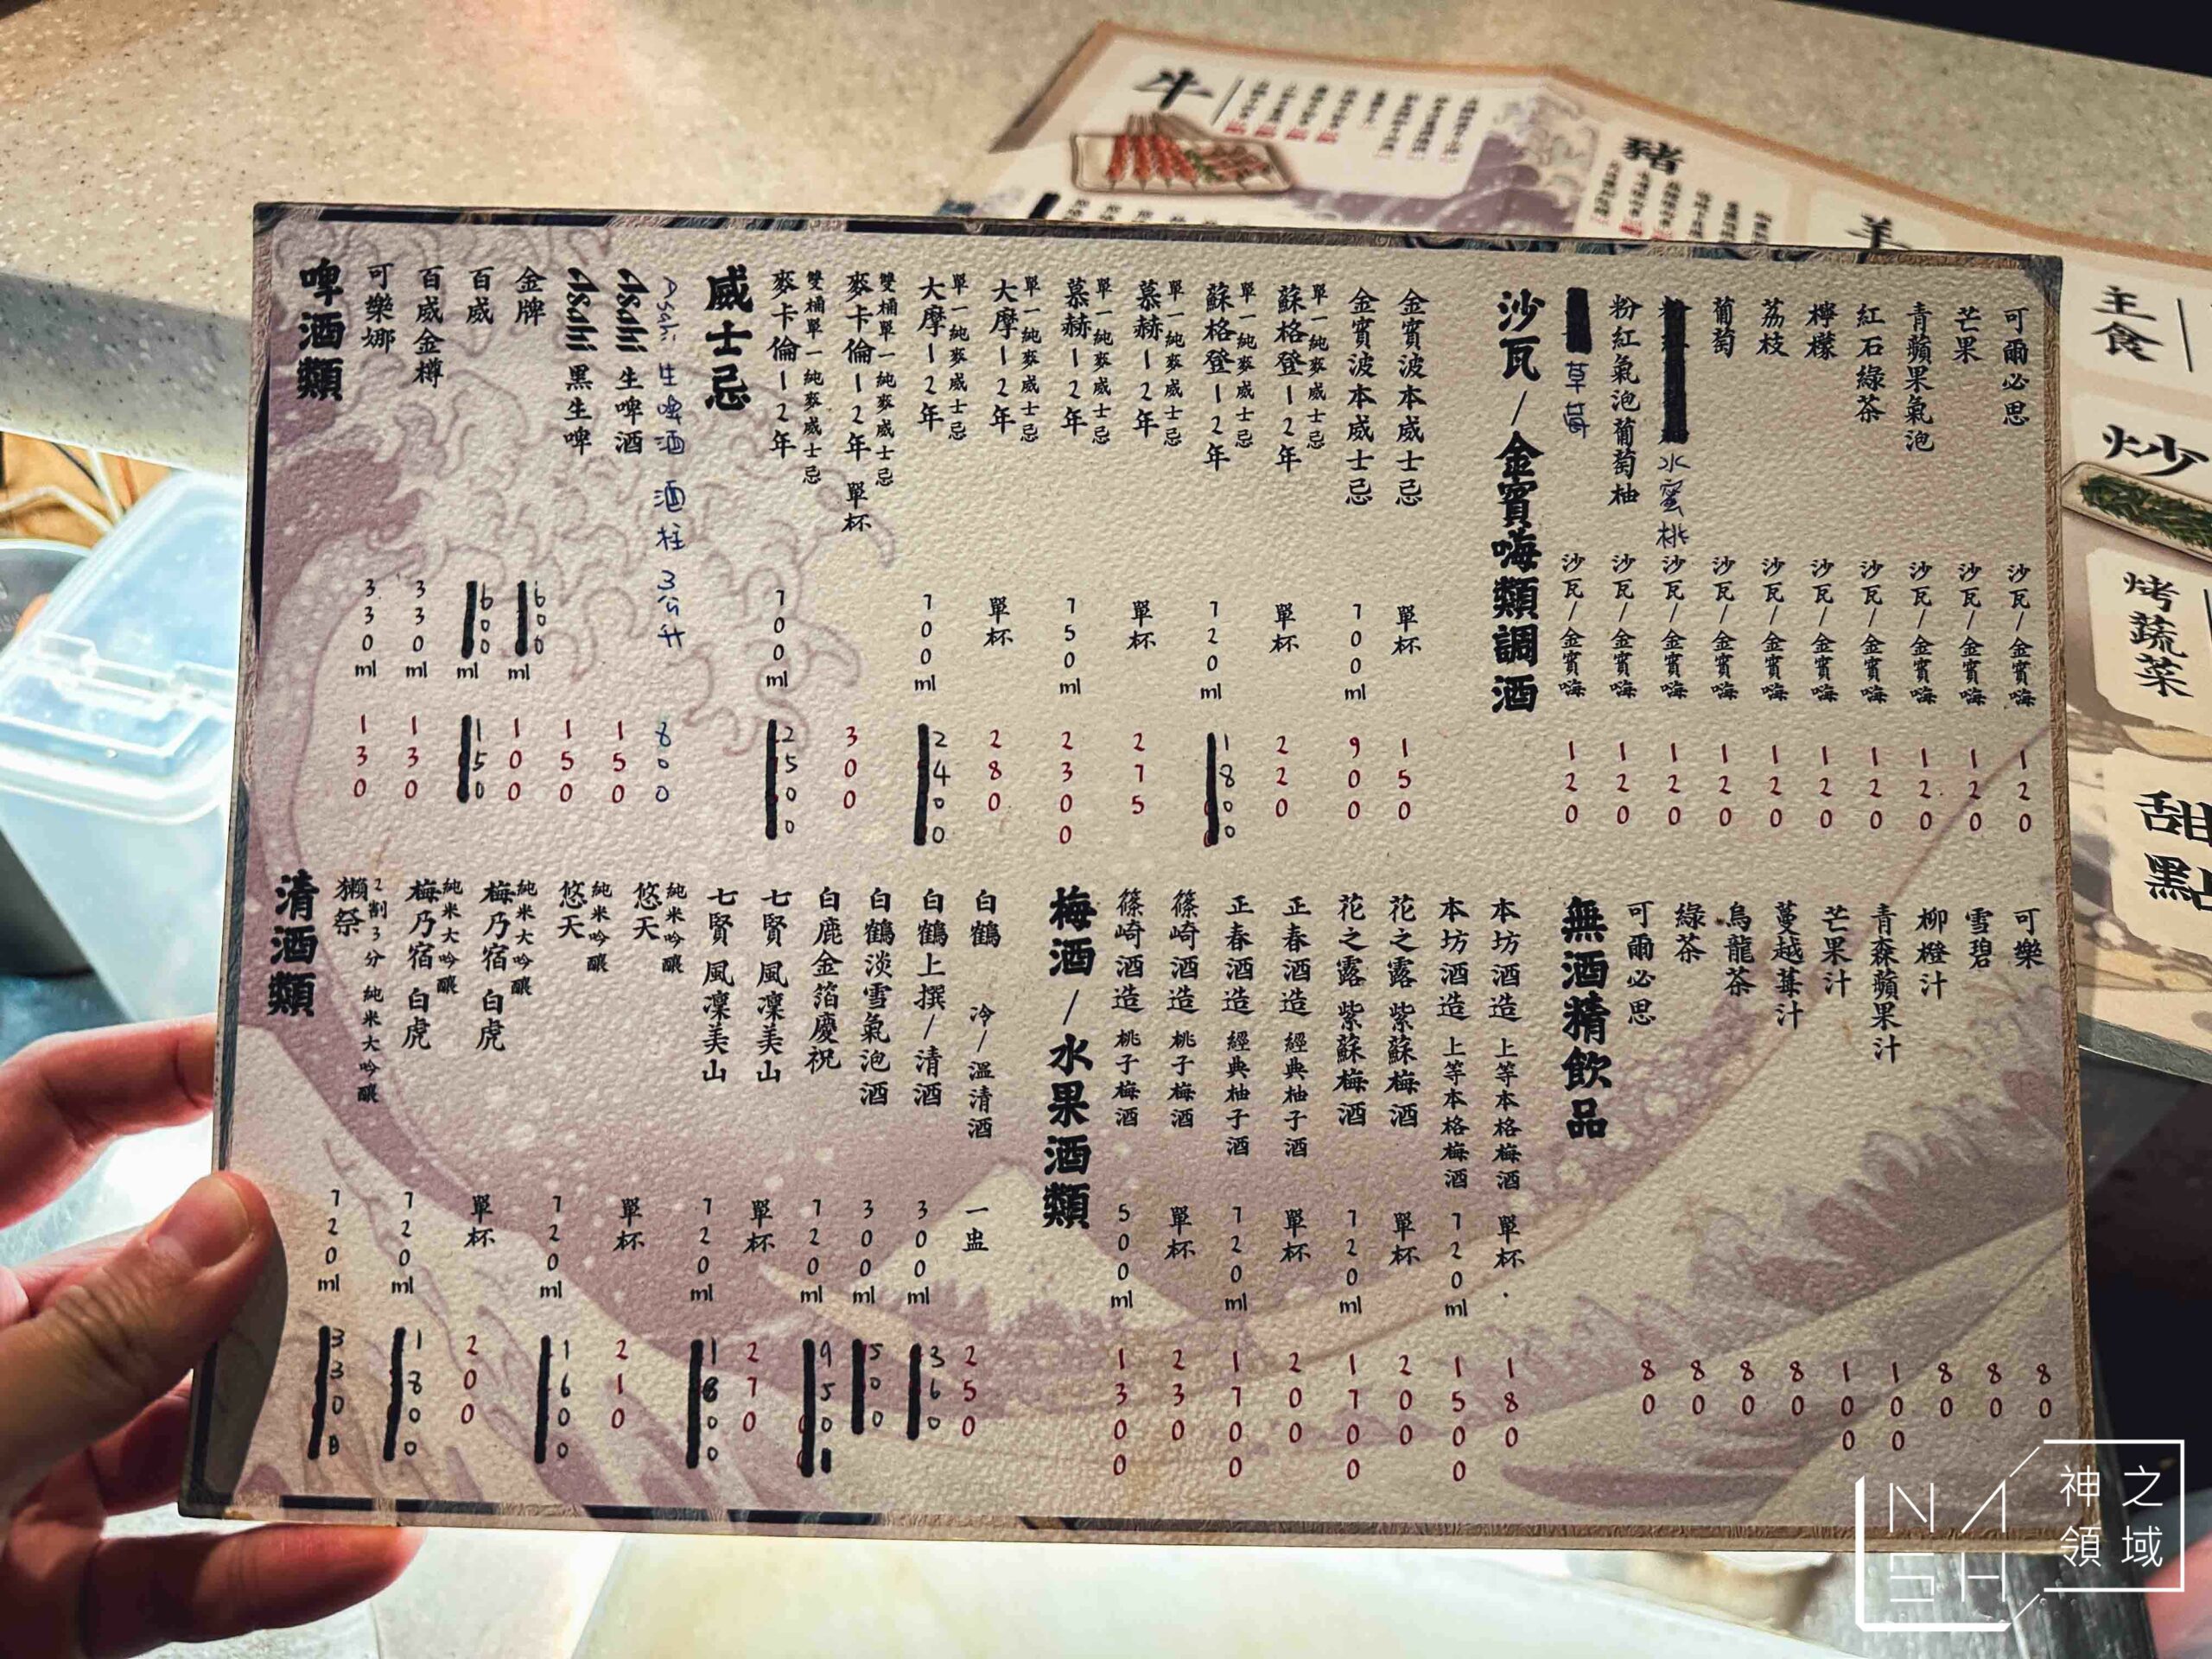 啤酒類
可樂娜 330ml 130
百威金樽 330ml 130
百威 600ml 150
金牌 600ml 100
Asahi 黑生啤 150
Asahi 生啤酒 150
Asahi 生啤酒 酒柱 3公升 800
威士忌
麥卡倫12年 雙桶單一純麥威士忌 700ml 2500
麥卡倫12年 單杯 雙桶單一純麥威士忌 300
大摩12年 單一純麥威士忌 700ml 2400
大摩12年 單一純麥威士忌 單杯 280
慕赫12年 單一純麥威士忌 750ml 2300
慕赫12年 單一純麥威士忌 單杯 275
蘇格登12年 單一純麥威士忌 720ml 1800
蘇格登12年 單一純麥威士忌 單杯 220
金賓波本威士忌 700ml 900
金賓波本威士忌 單杯 150
沙瓦/金賓嗨類調酒
草莓 沙瓦/金賓嗨 120
粉紅氣泡葡萄柚 沙瓦/金賓嗨 120
水蜜桃 沙瓦/金賓嗨 120
葡萄 沙瓦/金賓嗨 120
荔枝 沙瓦/金賓嗨 120
檸檬 沙瓦/金賓嗨 120
紅石綠茶 沙瓦/金賓嗨 120
青蘋果氣泡 沙瓦/金賓嗨 120
芒果 沙瓦/金賓嗨 120
可爾必思 沙瓦/金賓嗨 120
清酒類
獺祭 2割3分 純米大吟釀 720ml 330
梅乃宿 白虎 純米大吟釀 720ml 1800
梅乃宿 白虎 純米大吟釀 單杯 200
悠天 純米吟釀 720ml 1600
悠天 純米吟釀 單杯 210
七賢 風凜美山 720ml 1800
七賢 風凜美山 單杯 270
白鹿金箔慶祝 720ml 950
白鶴淡雪氣泡酒 300ml 500
白鶴上撰/清酒 300ml 360
白鶴 冷/溫清酒 一盅 250
梅酒/水果酒類
篠崎酒造 桃子梅酒 500ml 1300
篠崎酒造 桃子梅酒 單杯 230
正春酒造 經典柚子酒 720ml 1700
正春酒造 經典柚子酒 單杯 200
花之露 紫蘇梅酒 720ml 1700
花之露 紫蘇梅酒 單杯 200
本坊酒造 上等本格梅酒 720ml 1500
本坊酒造 上等本格梅酒 單杯 180
無酒精飲品
可爾必思 80
綠茶 80
烏龍茶 80
蔓越莓汁 80
芒果汁 100
青森蘋果汁 100
柳橙汁 80
雪碧 80
可樂 80
牛
豬
羊
主食
炒
烤蔬菜
甜點
NASH
神之領域